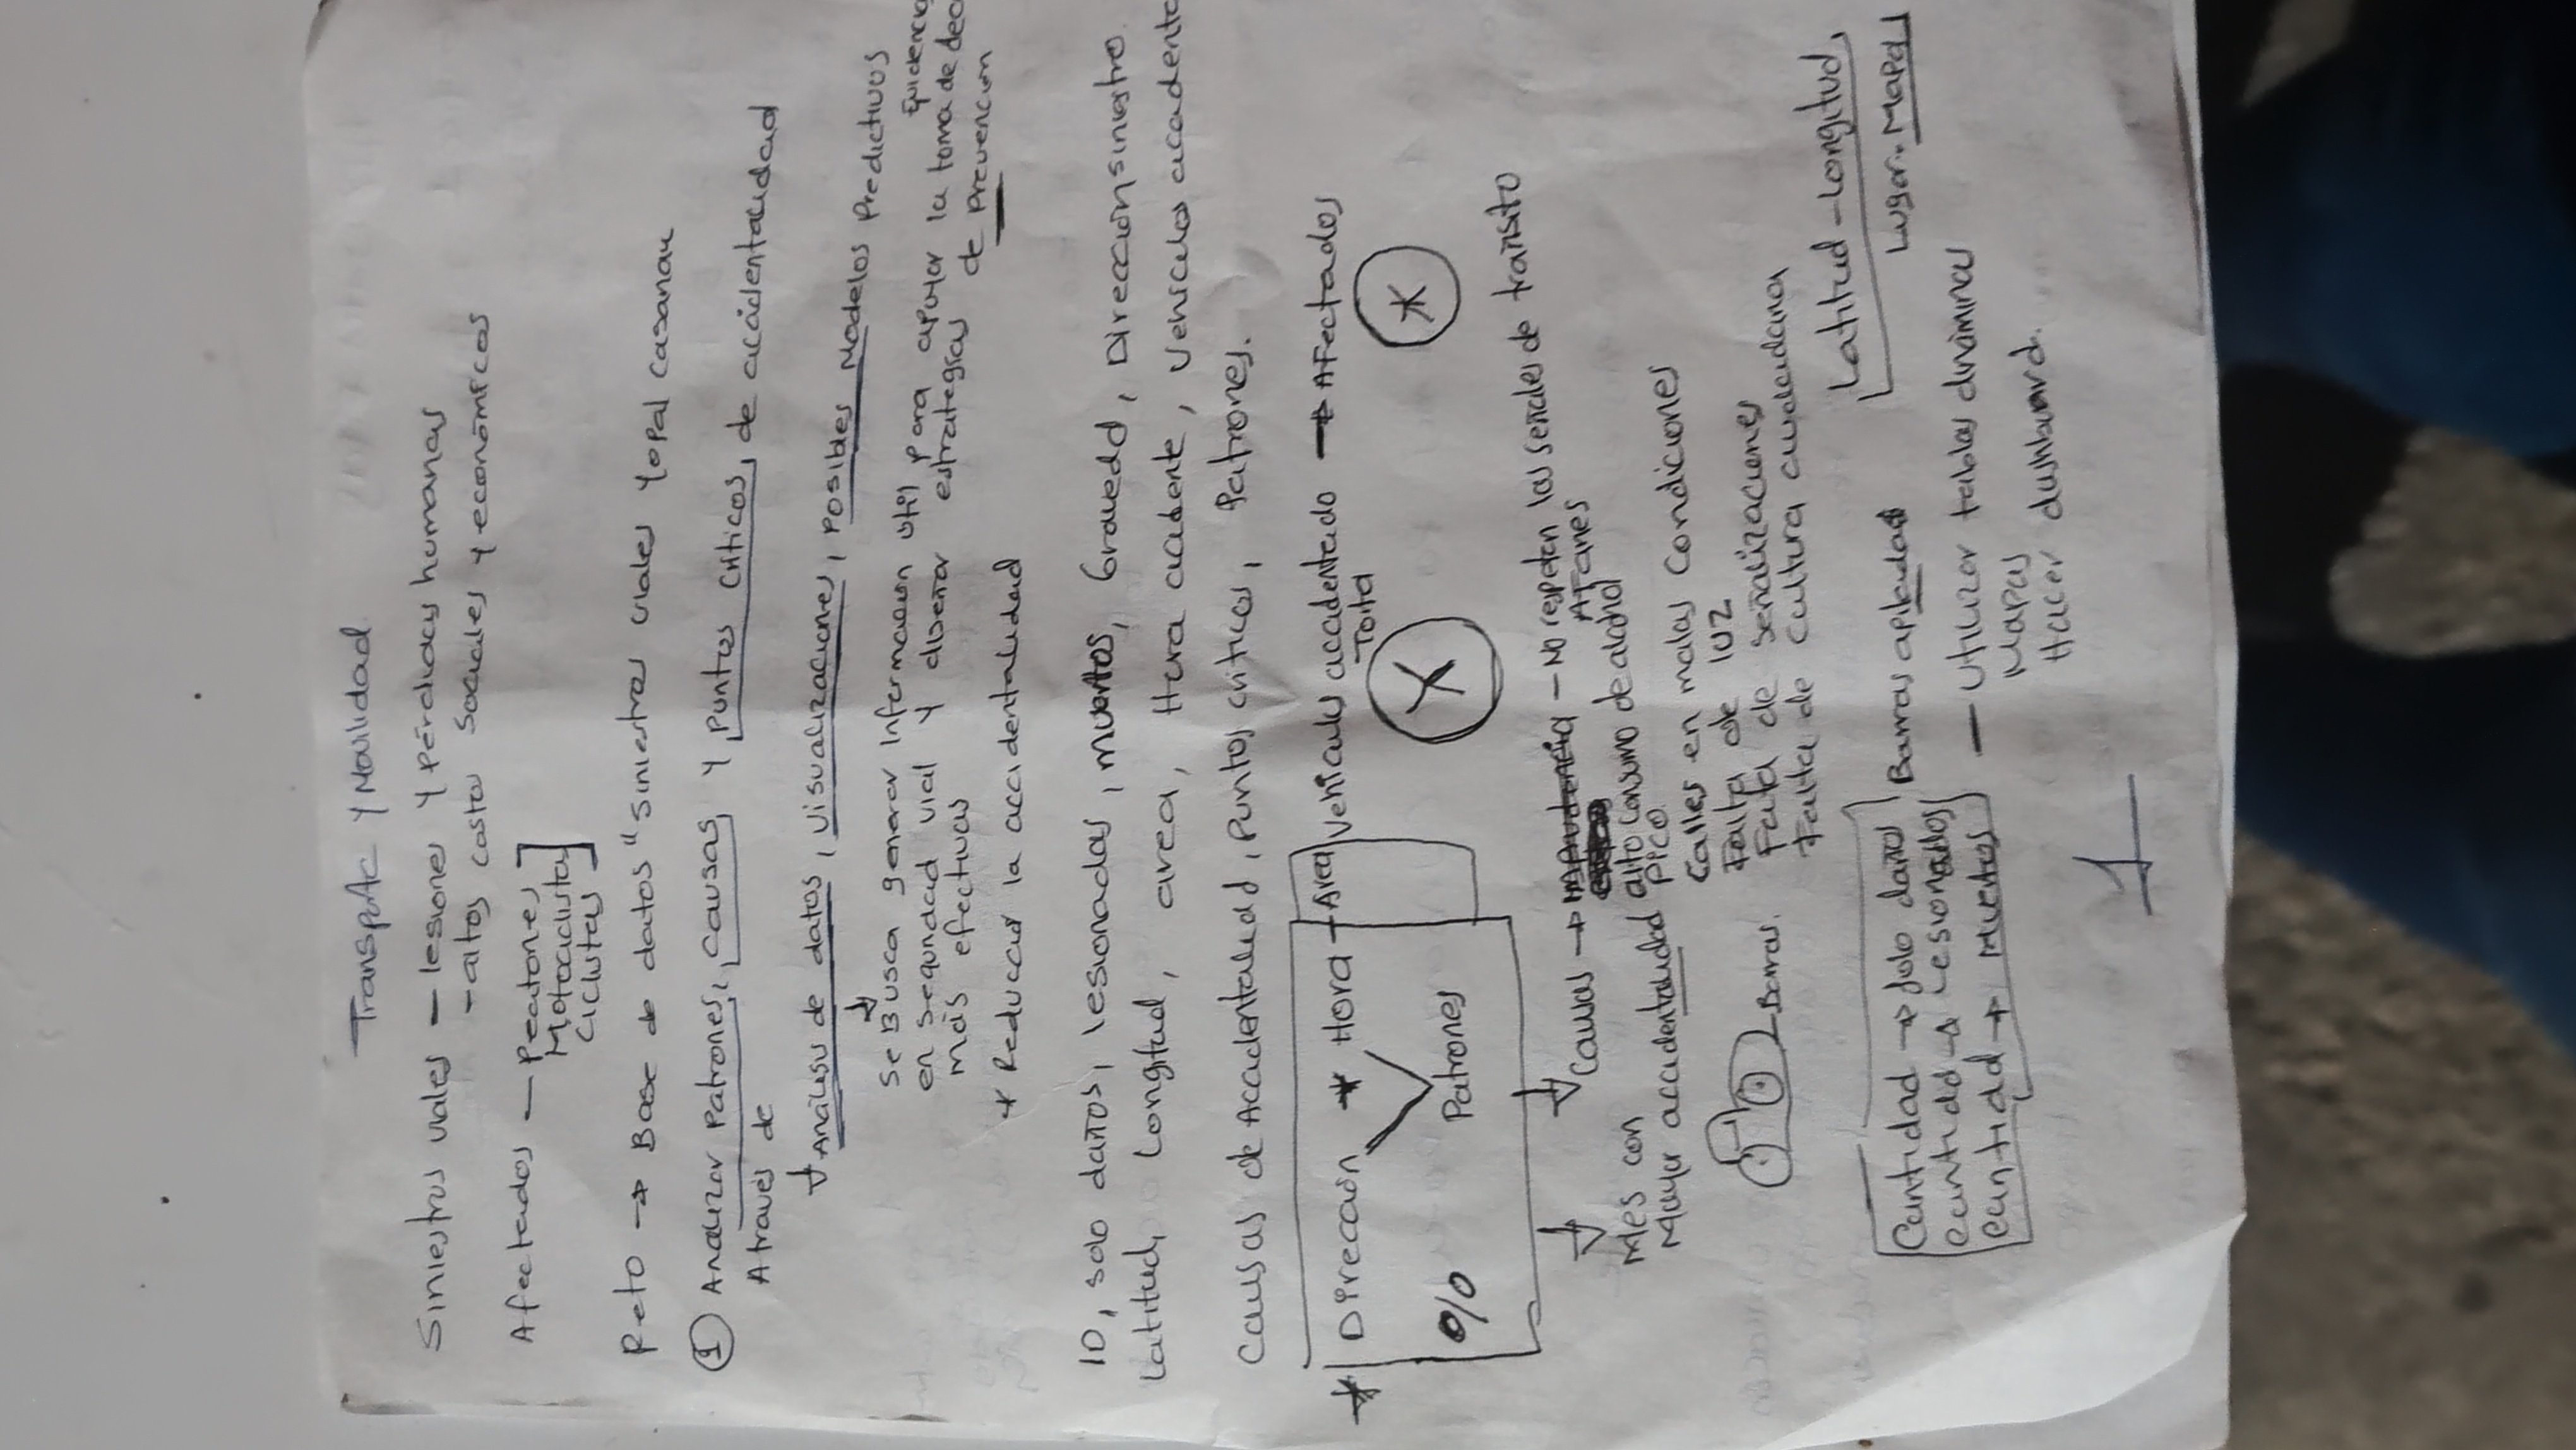 Transporte y Movilidad
Siniestros viales - lesiones y pérdidas humanas
- altos costos sociales y económicos
Afectados - Peatones
Motociclistas
ciclistas
Reto → Base de datos "siniestros viales Yopal casanare
① Analizar Patrones, causas y puntos criticos, de accidentalidad
A traves de
↓ Análisis de datos, visualizaciones, posibles Modelos Predictivos
Se Busca generar informacion util para apoyar la toma de
en seguridad vial y diseñar estrategias de prevencion
más efectivas
* Reducir la accidentalidad
ID, solo daños, lesionados, muertos, Gravedad, Direccion siniestro
Latitud, Longitud, area, Hora accidente, vehiculos
Causas de Accidentalidad, puntos criticos, Patrones.
* Direccion * Hora - Area Vehiculo accidentado → Afectados
Total
% Patrones X *
Causas → imprudencia - No respetan las señales de transito
Afanes
Mes con alto consumo de alcohol
Mayor accidentalidad pico
Calles en malas condiciones
Falta de luz
Falta de señalizaciones
Falta de cultura ciudadana
Barras.
Latitud - Longitud,
Lugar. Mapa
Cantidad → solo daños Barras apiladas
Cantidad → Lesionados
Cantidad → Muertos - Utilizar tablas dinamicas
Mapas
Hacer
1